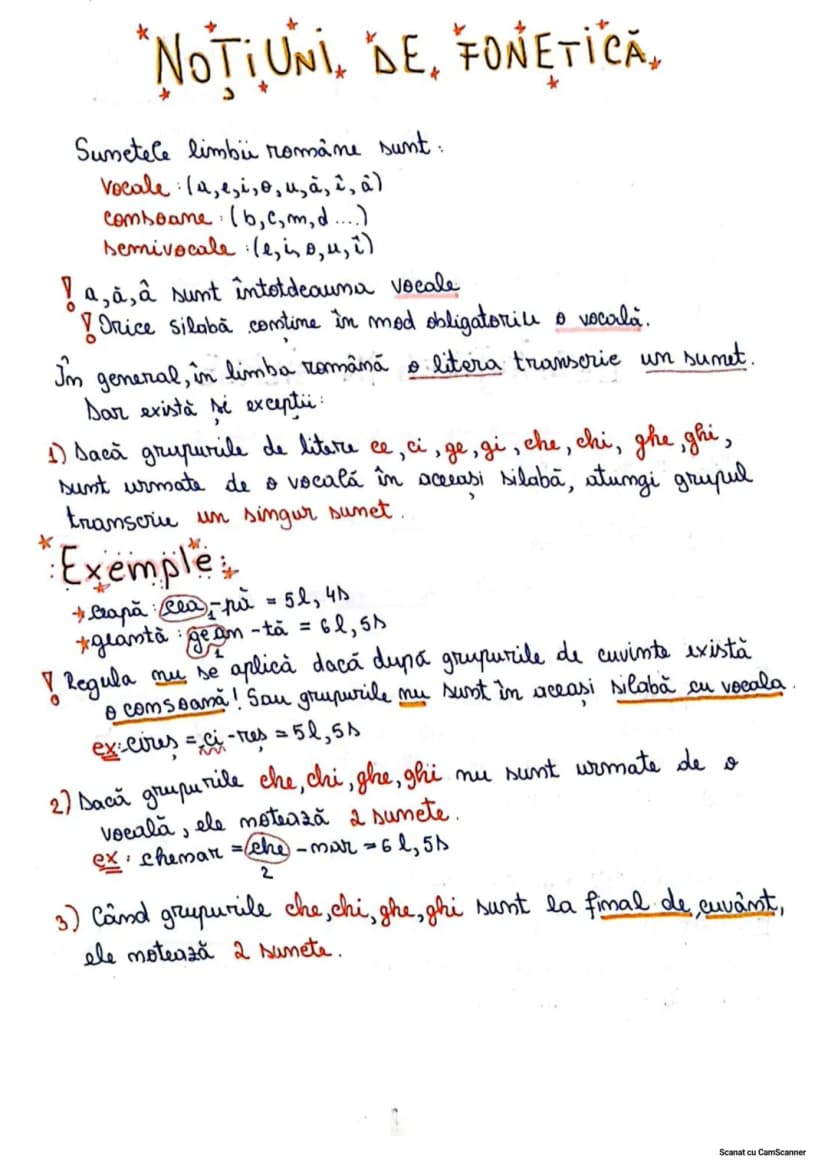 NOȚIUNI DE FONETICĂ
Sunetele limbii române sunt:
vocale: (a,e,i,o,u,ă,î,â)
consoane: (b,c,m,d....)
semivocale: (e,i,o,u,î)
! a,ă,â sunt întotdeauna vocale
! Orice silabă conține în mod obligatoriu o vocală.
În general, în limba română o litera transcrie un sunet.
Dar există și excepții:
1) Dacă grupurile de litere ce, ci, ge, gi, che, chi, ghe, ghi,
sunt urmate de o vocală în aceeași silabă, atungi grupul
transcrie un singur sunet.
Exemple:
ceapă: cea-pă = 5l, 4s
1
geantă: gean-tă = 6l, 5s
1
! Regula nu se aplică dacă după grupurile de cuvinte există
o consoană! Sau grupurile nu sunt în aceeași silabă cu vocala.
ex: cireș = ci-reș = 5l, 5s
2) Dacă grupurile che, chi, ghe, ghi nu sunt urmate de o
vocală, ele notează 2 sunete.
ex: chemar = che-mar = 6l, 5s
2
3) Când grupurile che, chi, ghe, ghi sunt la final de cuvânt,
ele notează 2 sunete.
1
Scanat cu CamScanner